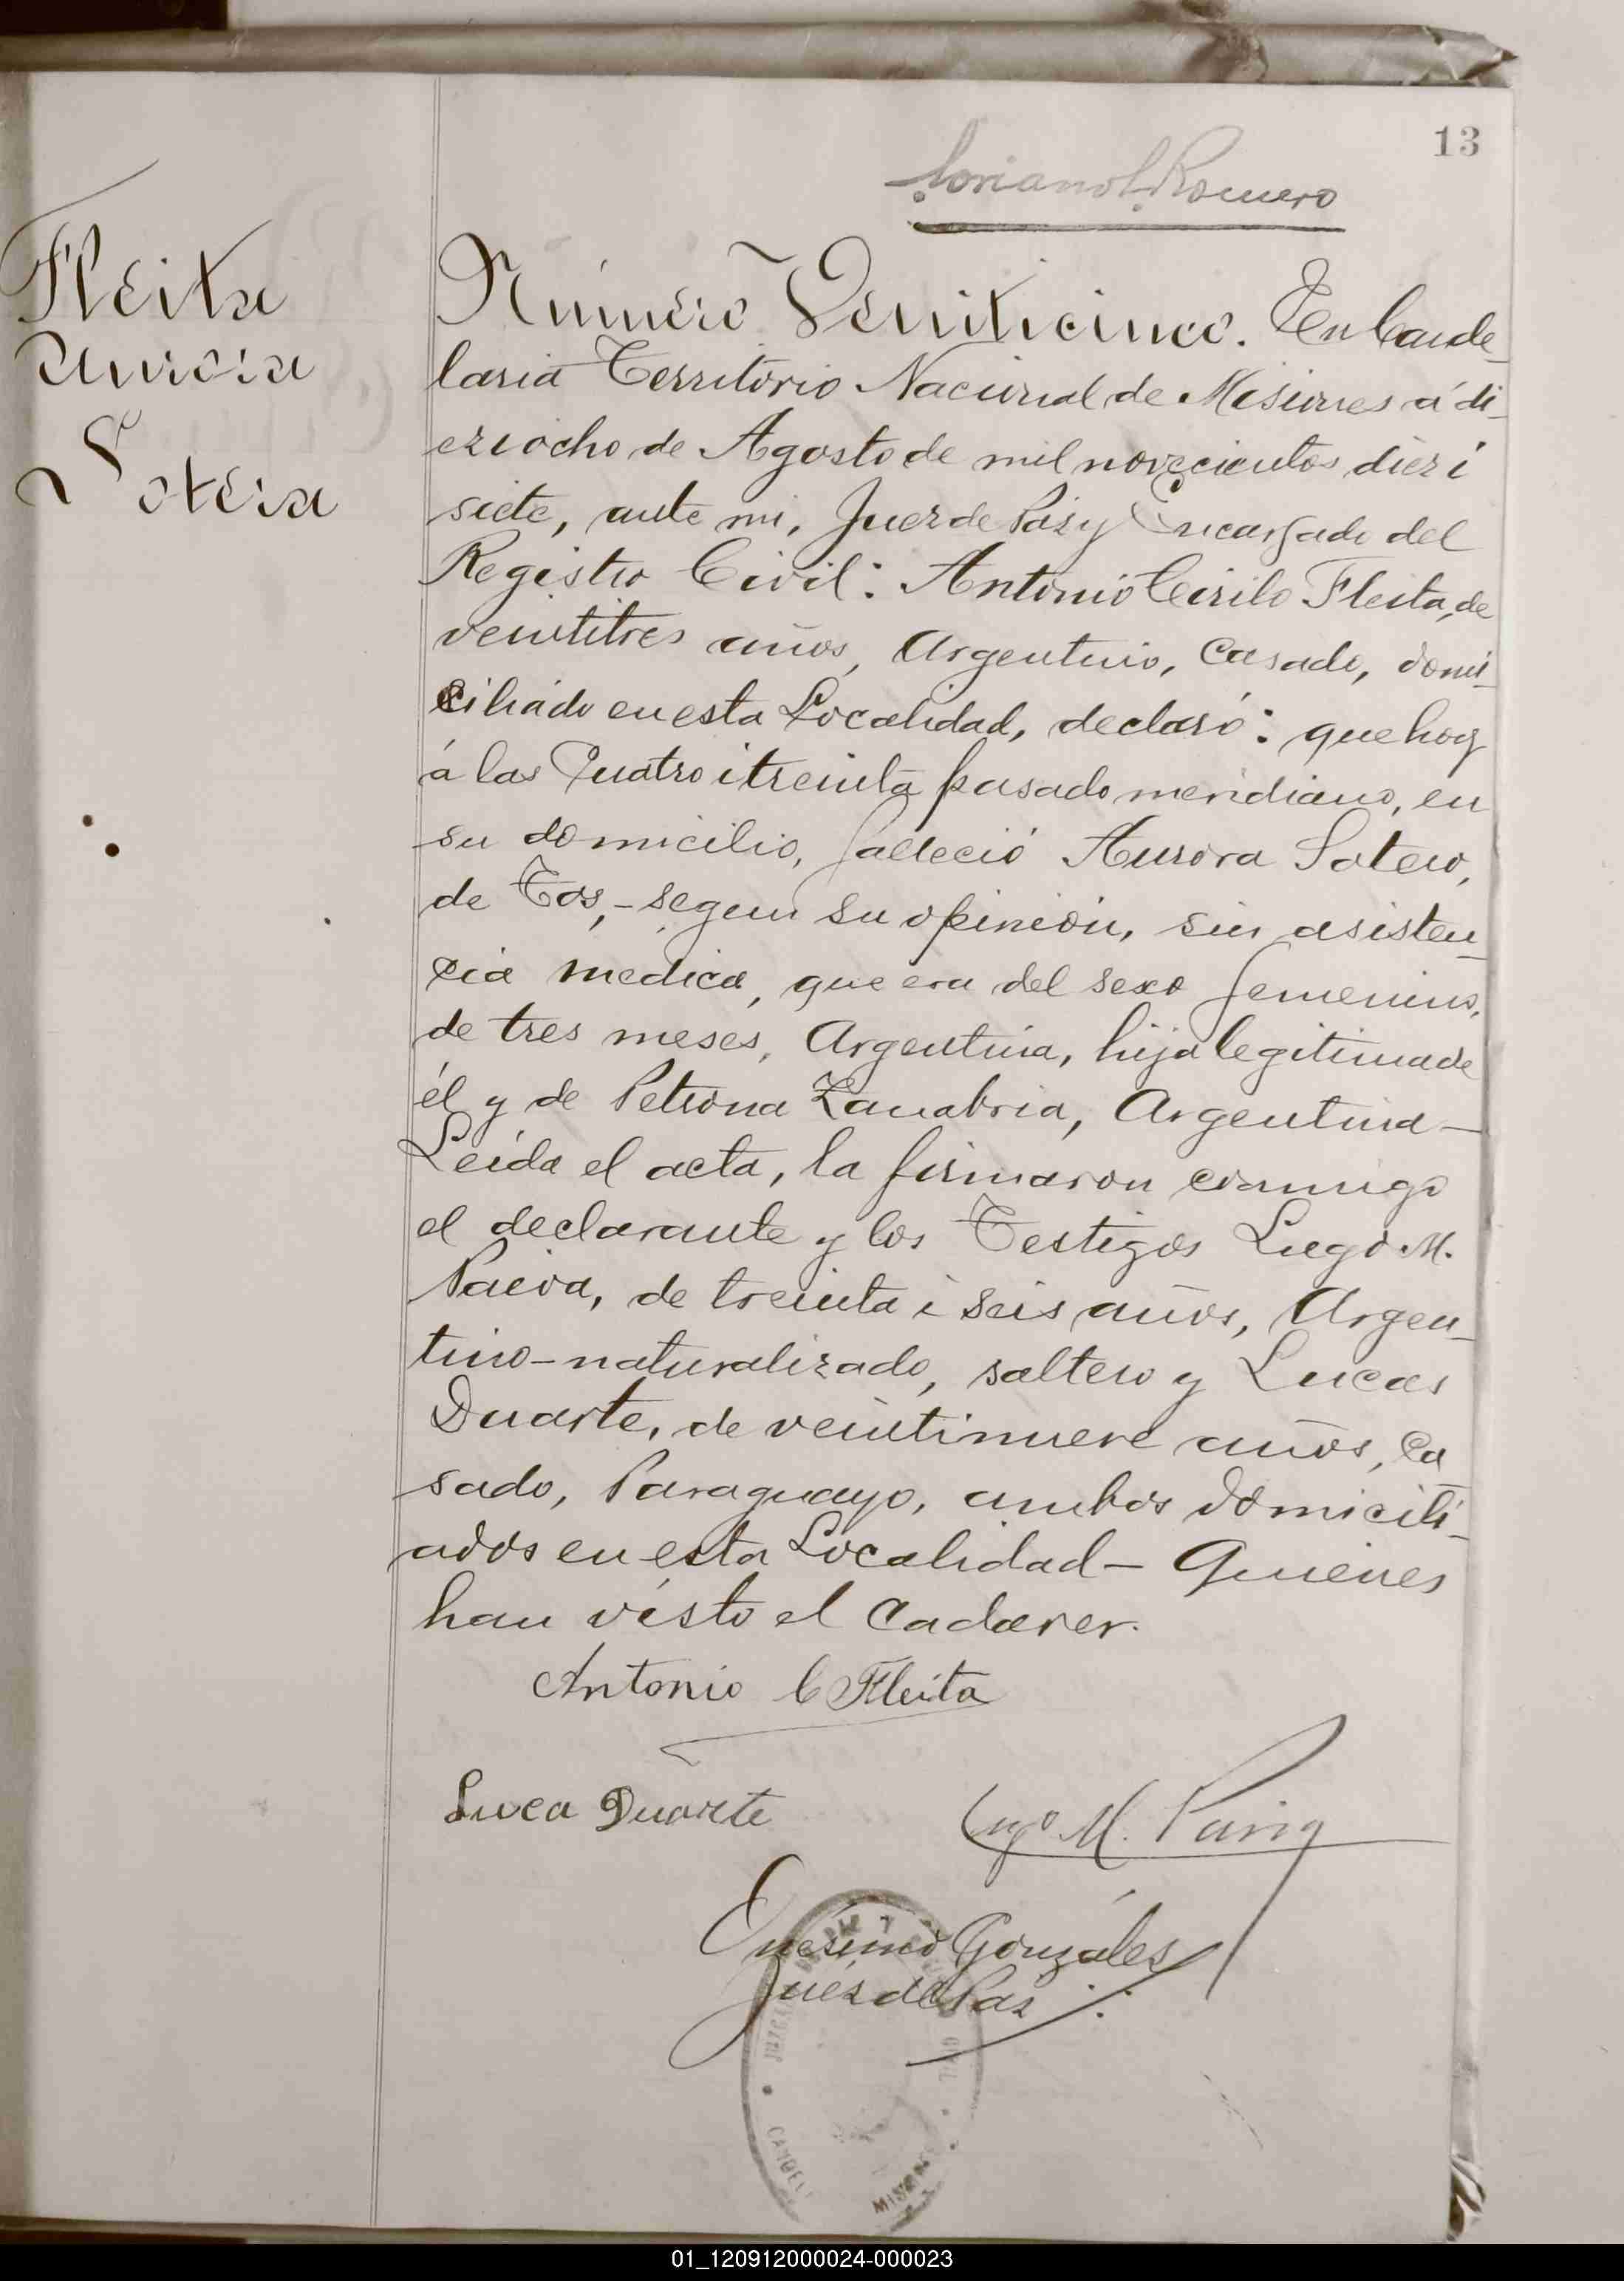 13
Soriano L. Romero
Fleita
Aurora
Sotera
Número Veinticinco. En Cande-
laria Territorio Nacional de Misiones á di-
eziocho de Agosto de mil novecientos diez i
siete, ante mi, Juez de Paz y Encargado del
Registro Civil: Antonio Cirilo Fleita, de
veintitres años, Argentino, Casado, domi-
ciliado en esta Localidad, declaró: que hoy
á las Cuatro i treinta pasado meridiano, en
su domicilio, falleció Aurora Sotera,
de Tos, - segun su opinión, sin asisten-
cia medica, que era del sexo femenino,
de tres meses, Argentina, hija legitima de
él y de Petrona Zanabria, Argentina -
Leída el acta, la firmaron conmigo
el declarante y los Testigos Lugo M.
Paiva, de treinta i seis años, Argen-
tino-naturalizado, soltero y Lucas
Duarte, de veintinueve años, Ca
sado, Paraguayo, ambos domicili-
ados en esta Localidad - Quienes
han visto el Cadaver.
Antonio C Fleita
Luca Duarte
Lugo M. Paiva
Onésimo Gonzáles
Juez de Paz
MISIONES
01_120912000024-000023